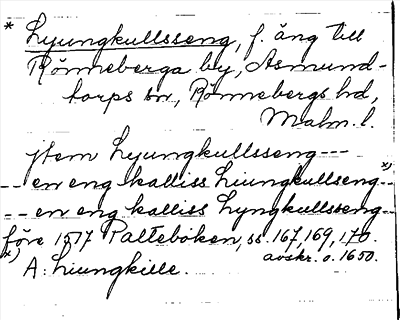 * Lyungkullsseng, f. äng till
Rönneberga by, Asmund-
torps sn, Rönnebergs hd,
Malm. l.
jtem Lyungkullsseng ---
-- en eng kalliss Liungkullseng -- x)
-- en eng kalliss Lyngkullsseng --
före 1517 Palteboken, ss. 167, 169, 170.
avskr. o. 1650.
x) A: Liungkille.